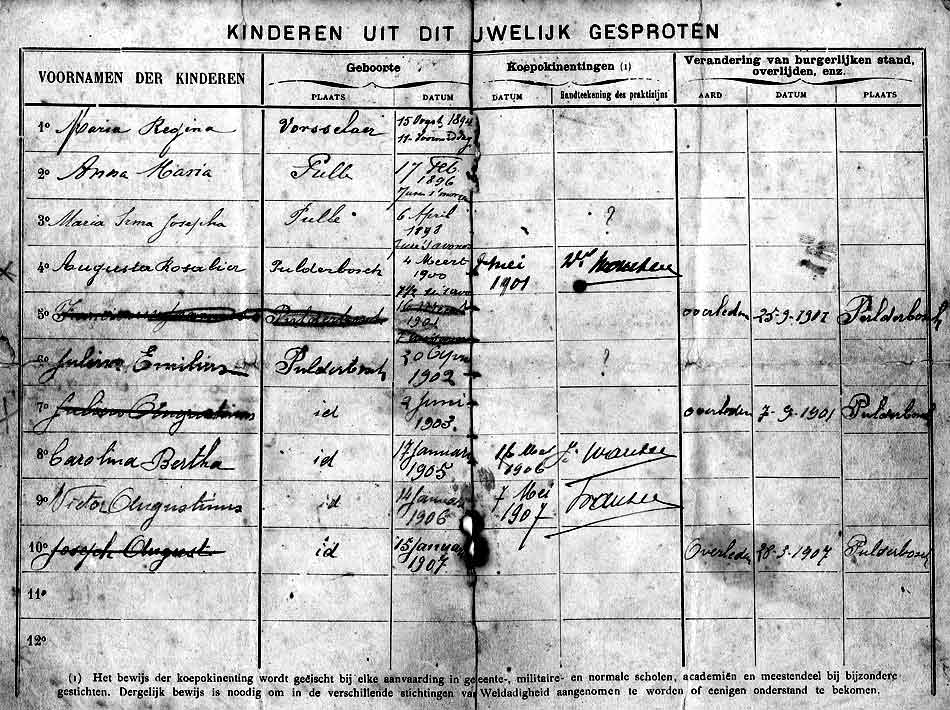 KINDEREN UIT DIT UWELIJK GESPROTEN
VOORNAMEN DER KINDEREN
Geboorte
Koepokinentingen (1)
Verandering van burgerlijken stand, overlijden, enz.
PLAATS
DATUM
DATUM
Handteekening des praktizijns
AARD
DATUM
PLAATS
1º Maria Regina Vorsselaer 15 1894
2º Anna Maria Pulle 17 Feb. 1896
3º Maria Irma Josepha Pulle 6 April 1898 ?
4º Augusta Rosalier Pulderbosch 4 Meert 1900 Mei 1901
5º Pulderbosch 1901 overleden 25-9-1901 Pulderbosch
6º Julius Emilius Pulderbosch 20 1902 ?
7º Augustinus id 9 Juni 1903. overleden 7-9-1901 Pulderbosch
8º Carolina Bertha id 17 Januari 1905 1906
9º Victor Augustinus id 14 Januari 1906 7 Mei 1907
10º Joseph August id 15 Januari 1907 Overleden 28-3-1907 Pulderbosch
11º
12º
(1) Het bewijs der koepokinenting wordt geëischt bij elke aanvaarding in gemeente-, militaire- en normale scholen, academiën en meestendeel bij bijzondere
gestichten. Dergelijk bewijs is noodig om in de verschillende stichtingen van Weldadigheid aangenomen te worden of eenigen onderstand te bekomen.